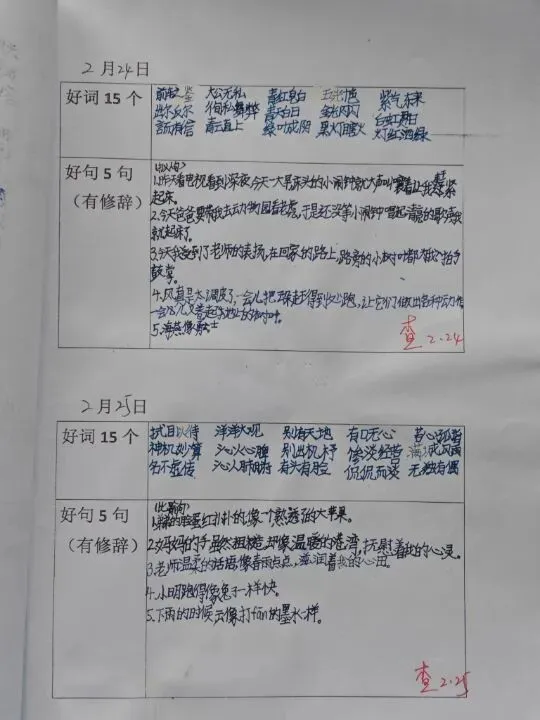 2月24日
好词15个
大公无私 青红皂白 紫气东来
出尔反尔 徇私舞弊 青天白日 金光闪闪 白虹贯日
言而有信 青云直上 桑叶成阴 黑灯瞎火 灯红酒绿
好句5句
（有修辞）
(拟人句)
1.昨天看电视看到深夜,今天一大早床头的小闹钟就大声叫嚷着让我赶紧
起床。
2.今天爸爸要带我去动物园看老虎,于是还没等小闹钟唱起清脆的歌声我
就起床了。
3.今天我受到了老师的表扬,在回家的路上,路旁的小树叶都为我拍手
鼓掌。
4.风真是太调皮了,一会儿把珠赶得到处跑,让它们做出各种动作,
一会儿又卷起地上的树叶。
5.海燕像勇士
查 2.24
2月25日
好词15个
拭目以待 洋洋大观 别有天地 有口无心 苦心孤诣
神机妙算 沁人心脾 别出机杼 惨淡经营 满城风雨
名不虚传 沁人肺腑 有头有脸 侃侃而谈 无独有偶
好句5句
（有修辞）
(比喻句)
1.弟弟的脸蛋红扑扑的像一个熟透了的大苹果。
2.妈妈的手虽然粗糙却像温暖的港湾,抚慰着我的心灵。
3.老师温柔的话语像春雨点点,滋润着我的心田。
4.小明跑得像兔子一样快。
5.下雨的时候云像打fan的墨水一样。
查 2.25